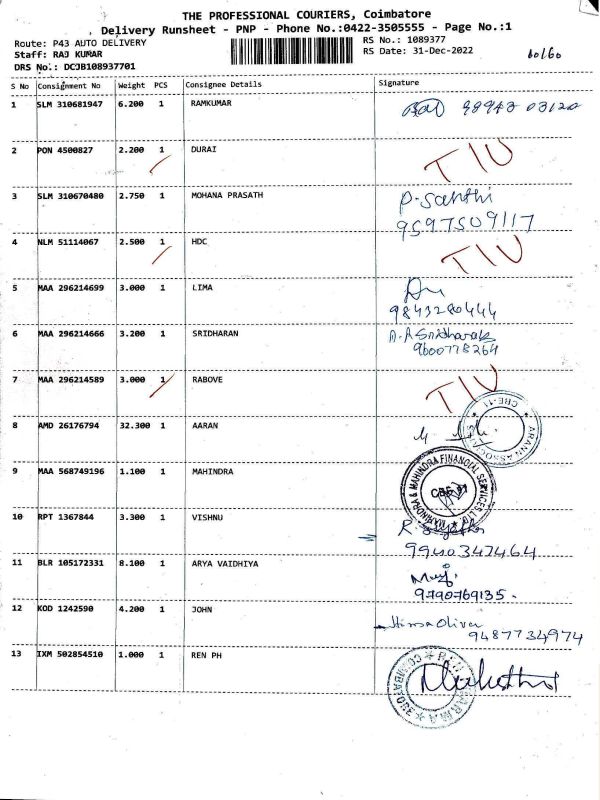 THE PROFESSIONAL COURIERS, Coimbatore
Delivery Runsheet - PNP - Phone No.:0422-3505555 - Page No.:1
Route: P43 AUTO DELIVERY
RS No.: 1089377
Staff: RAJ KUMAR
RS Date: 31-Dec-2022
60/60
DRS No.: DCJB108937701
S No Consignment No Weight PCS Consignee Details Signature
1 SLM 310681947 6.200 1 RAMKUMAR
2 PON 4500827 2.200 1 DURAI TIU
3 SLM 310670480 2.750 1 MOHANA PRASATH P. Santhi
9597509117
4 NLM 51114067 2.500 1 HDC TIU
5 MAA 296214699 3.000 1 LIMA
9843280444
6 MAA 296214666 3.200 1 SRIDHARAN
9600778264
7 MAA 296214589 3.000 1 RABOVE TIU
8 AMD 26176794 32.300 1 AARAN
CBE-11
9 MAA 568749196 1.100 1 MAHINDRA
MAHINDRA & MAHINDRA FINANCIAL SERVICES LTD
10 RPT 1367844 3.300 1 VISHNU
9940347464
11 BLR 105172331 8.100 1 ARYA VAIDHIYA
9790769135.
12 KOD 1242590 4.200 1 JOHN
9487734974
13 IXM 502854510 1.000 1 REN PH